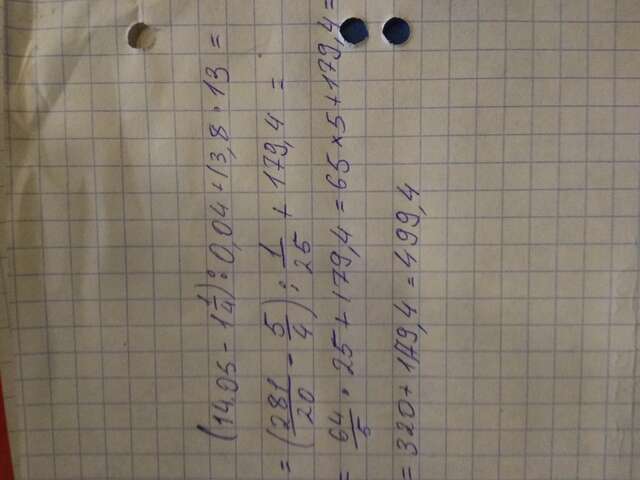 (14,05 - 1 1/4) : 0,04 + 13,8 · 13 =
= (281/20 - 5/4) : 1/25 + 179,4 =
= 64/5 · 25 + 179,4 = 65 × 5 + 179,4 =
= 320 + 179,4 = 499,4